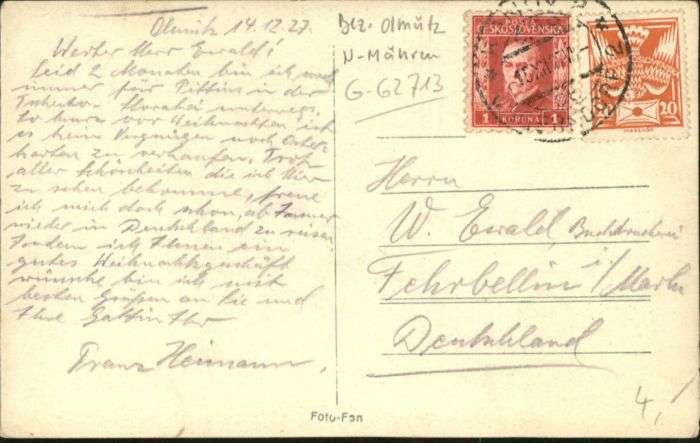 Olmütz 14.12.27.
Werter Herr Ewald!
Seid 2 Monaten bin ich noch
immer für Pittius in der
Tschecho-Slovakei unterwegs,
so kurz vor Weihnachten ist
es kein Vergnügen noch Ansichts-
karten zu verkaufen. Trotz
aller Schönheiten die ich hier
zu sehen bekomme, freue
ich mich doch schon, ab Januar
wieder in Deutschland zu reisen
Indem ich Ihnen ein
gutes Weihnachtsgeschäft
wünsche bin ich mit
besten Grüßen an Sie und
Ihre Gattin Ihr
Franz Heimann,
Bez. Olmütz
N-Mähren
G-62713
POŠTA
ČESKOSLOVENSKÁ
1 KORUNA 1
20
Herrn
W. Ewald, Buchdruckerei
Fehrbellin i/Mark
Deutschland
4,-
Foto-Fon